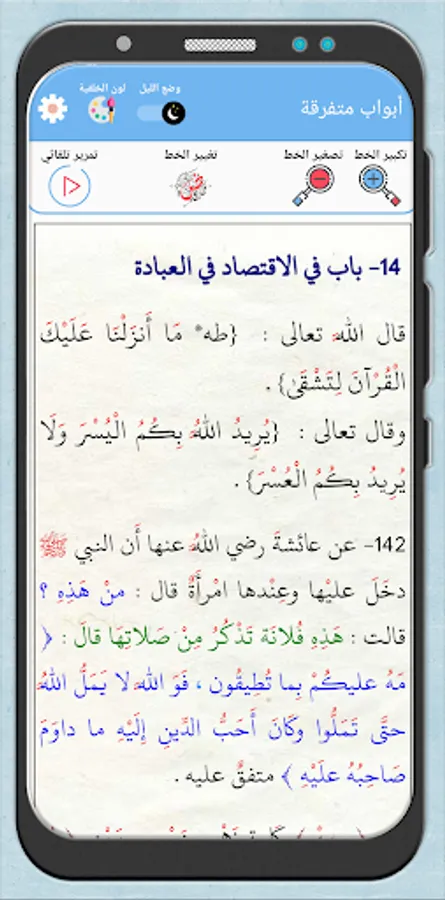 أبواب متفرقة
وضع الليل
لون الخلفية
تكبير الخط
تصغير الخط
تغيير الخط
تمرير تلقائي
14- باب في الاقتصاد في العبادة
قال الله تعالى : {طه* مَا أَنزَلْنَا عَلَيْكَ
الْقُرْآنَ لِتَشْقَىٰ} .
وقال تعالى : {يُرِيدُ اللهُ بِكُمُ الْيُسْرَ وَلَا
يُرِيدُ بِكُمُ الْعُسْرَ} .
142- عن عائشةَ رضي اللهُ عنها أن النبي ﷺ
دخَلَ عليْها وعِنْدها امْرأَةٌ قال : منْ هَذِهِ ؟
قالت : هَذِهِ فُلانَة تَذْكُرُ مِنْ صَلاتِهَا قالَ : ﴿
مَهُ عليكُمْ بِما تُطِيقُون ، فَوَ اللهِ لا يَمَلُّ اللهُ
حتَّى تَمَلُّوا وكَانَ أَحَبُّ الدِّينِ إِلَيْهِ ما داوَمَ
صَاحِبُهُ علَيْهِ ﴾ متفقٌ عليه .